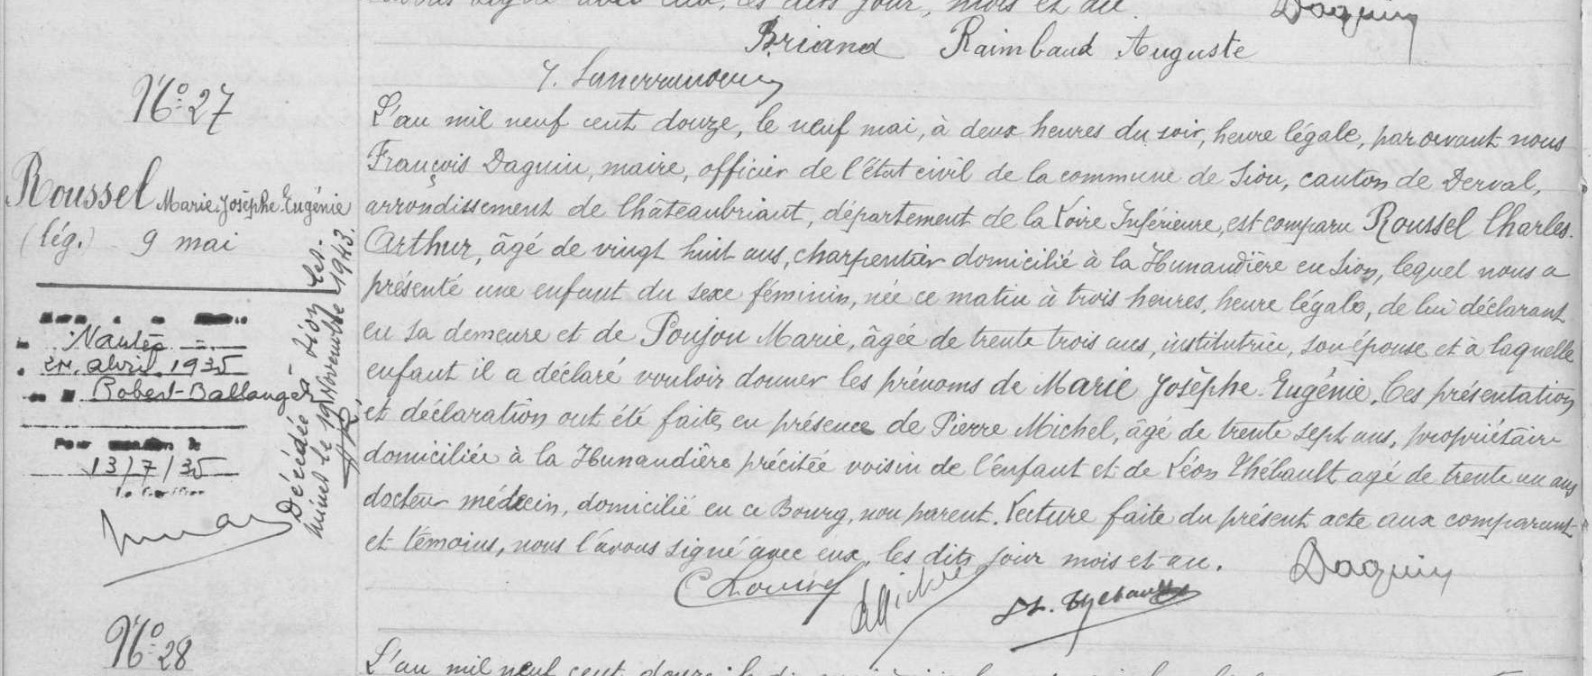 Daguin
Briand Raimbaud Auguste
N° 27
Roussel Marie-Josèphe-Eugénie
(lég.) 9 mai
Nantes
avril 1935
Robert-Ballanger
13/7/35
Décédée à Sion les-
Mines le 19 Novembre 1943.
L'an mil neuf cent douze, le neuf mai, à deux heures du soir, heure légale, par devant nous
François Daguin, maire, officier de l'état civil de la commune de Sion, canton de Derval,
arrondissement de Châteaubriant, département de la Loire Inférieure, est comparu Roussel Charles-
Arthur, âgé de vingt huit ans, charpentier domicilié à la Hunaudière en Sion, lequel nous a
présenté une enfant du sexe féminin, née ce matin à trois heures, heure légale, de lui déclarant
en sa demeure et de Poujou Marie, âgée de trente trois ans, institutrice, son épouse et à laquelle
enfant il a déclaré vouloir donner les prénoms de Marie Josèphe-Eugénie. Ces présentation
et déclaration ont été faites en présence de Pierre Michel, âgé de trente sept ans, propriétaire
domiciliée à la Hunaudière précitée voisin de l'enfant et de Léon Thébault agé de trente un ans
docteur médecin, domicilié en ce Bourg, non parent. Lecture faite du présent acte aux comparant
et témoins, nous l'avons signé avec eux, les dits jour mois et an. Daguin
C Roussel PMichel Thébault
N° 28
L'an mil neuf cent douze